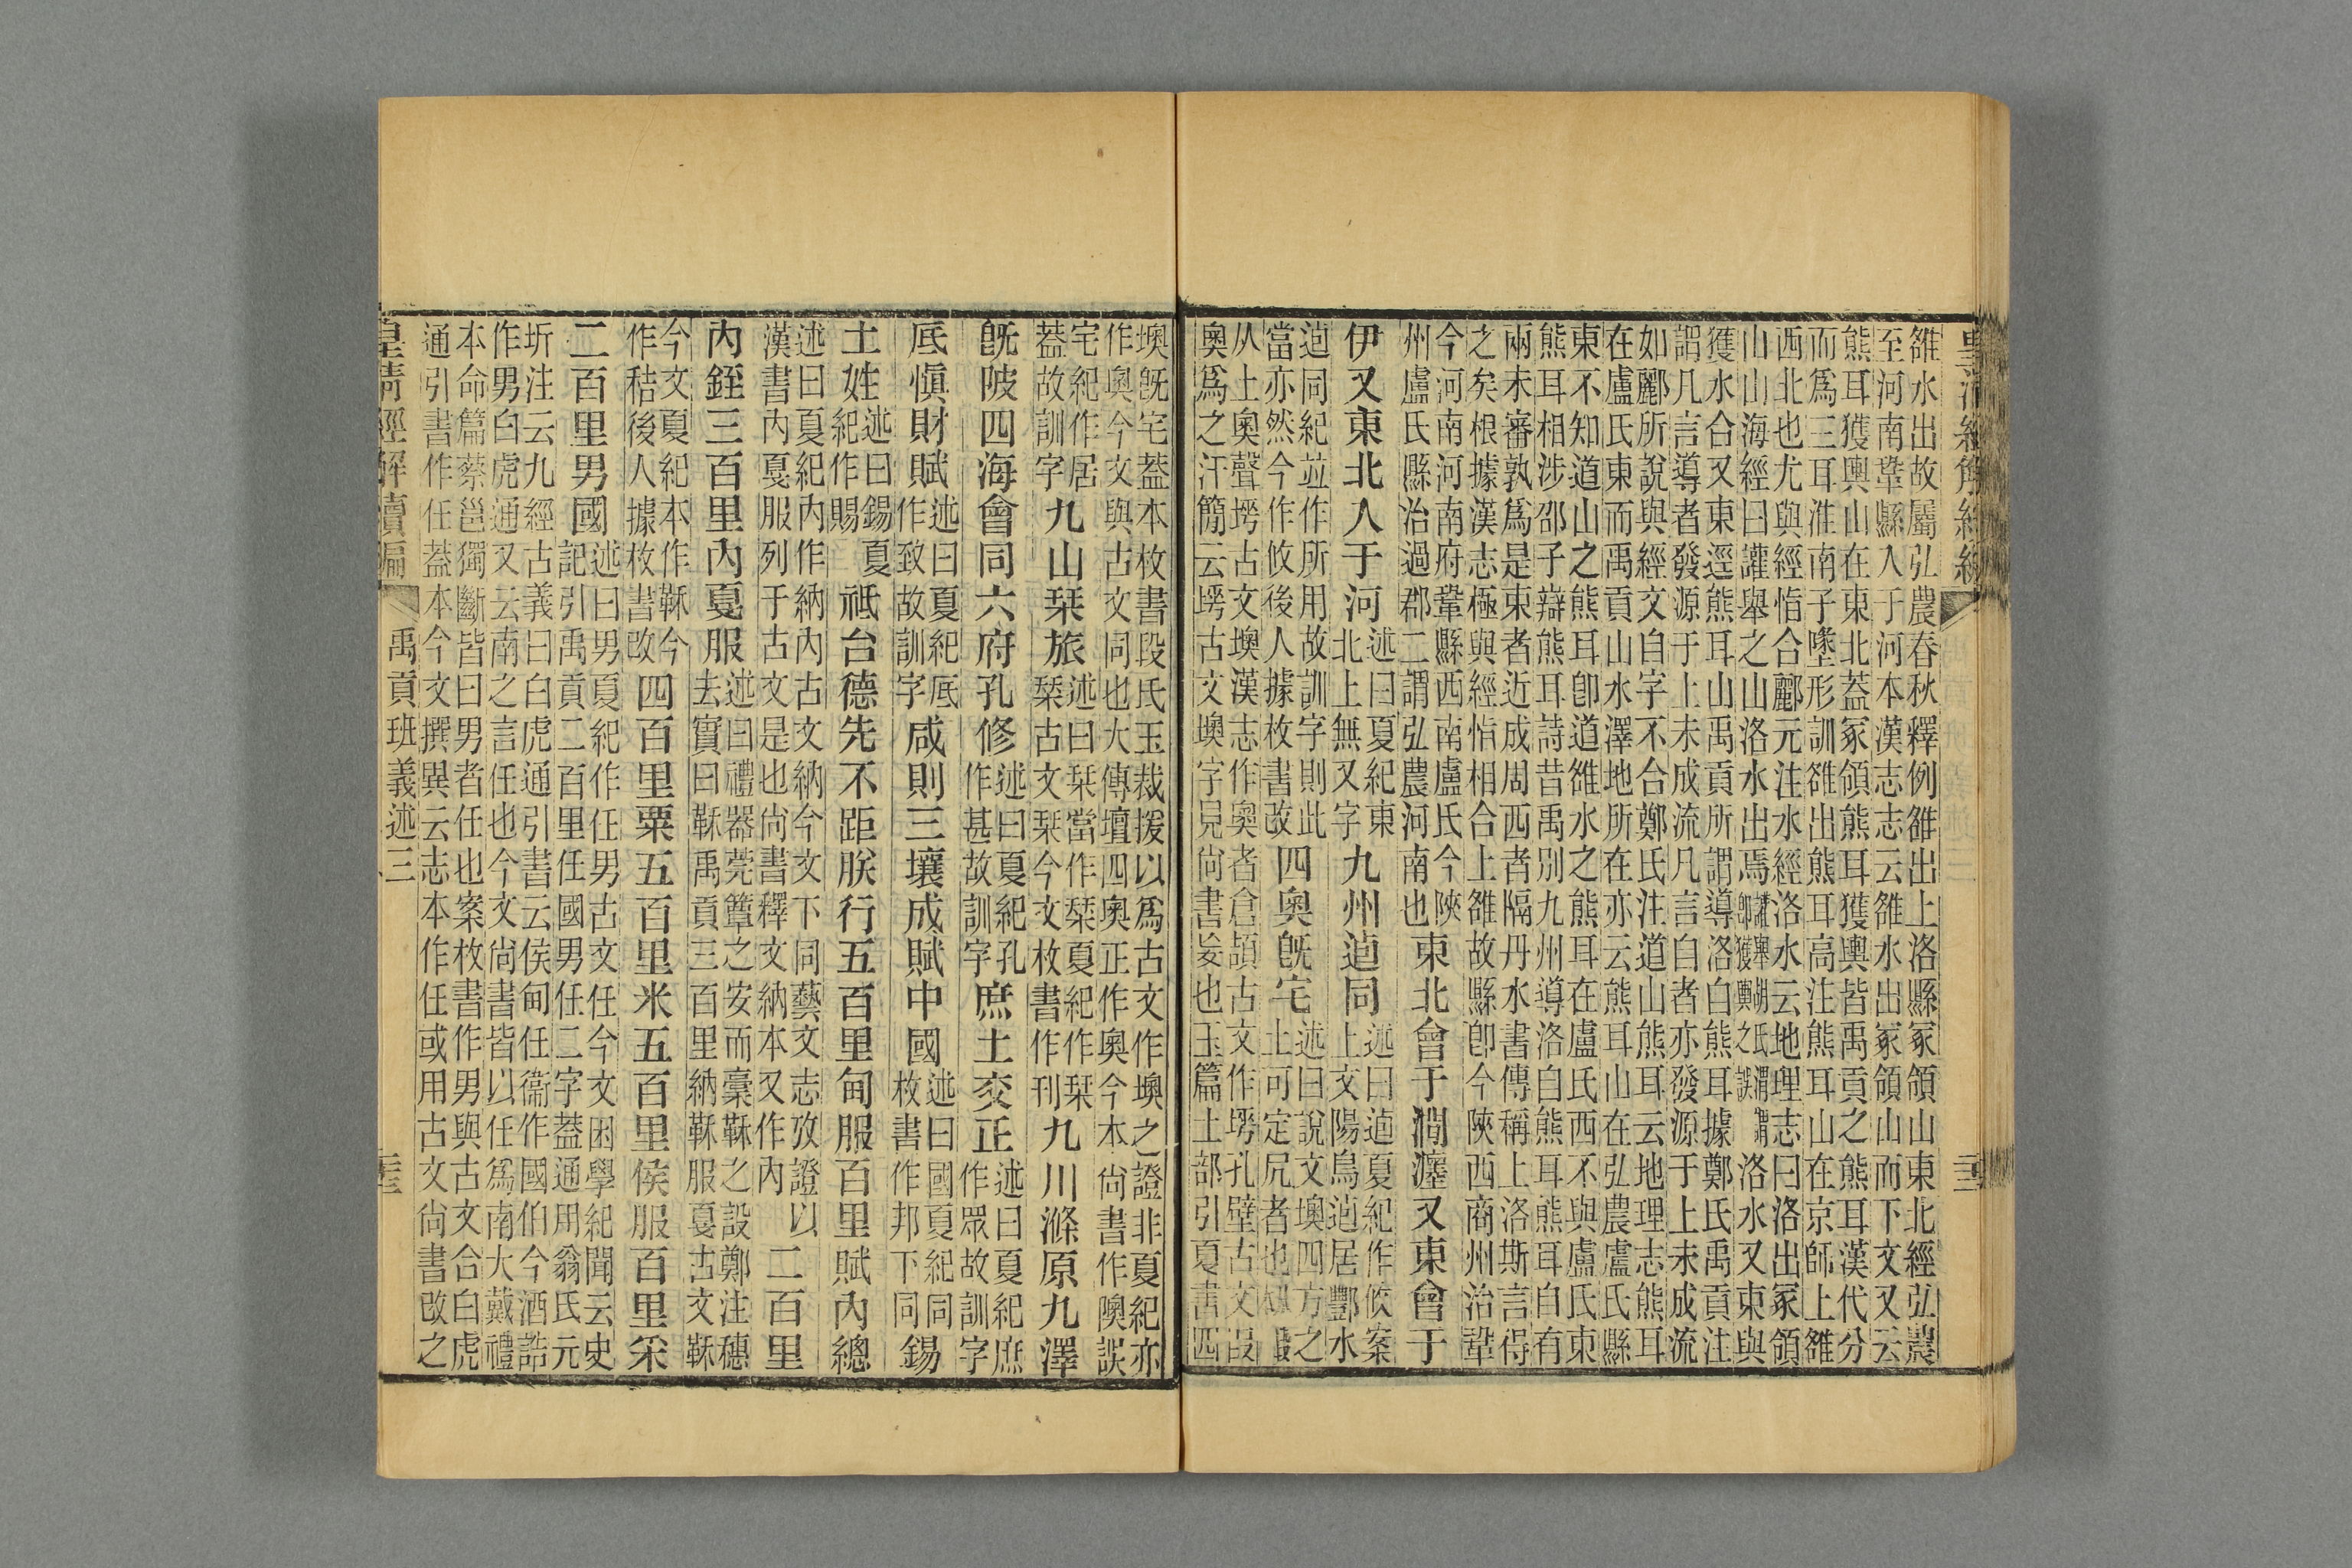 雒水出故屬弘農春秋釋例雒出上洛縣冢領山東北經弘農
至河南鞏縣入于河本漢志志云雒水出冢領山而下文又云
熊耳獲輿山在東北蓋冢領熊耳獲輿皆禹貢之熊耳漢代分
而爲三耳淮南子墬形訓雒出熊耳高注熊耳山在京師上雒
西北也尤與經恉合酈元注水經洛水云地理志曰洛出冢領
山山海經曰讙舉之山洛水出焉讙舉胡氏渭謂卽獲輿之誤洛水又東與
獲水合又東逕熊耳山禹貢所謂導洛自熊耳據鄭氏禹貢注
謂凡言導者發源于上未成流凡言自者亦發源于上未成流
如酈所說與經文自字不合鄭氏注道山熊耳云地理志熊耳
在盧氏東而禹貢山水澤地所在亦云熊耳山在弘農盧氏縣
東不知道山之熊耳卽道雒水之熊耳在盧氏西不與盧氏東
熊耳相涉邵子辯熊耳詩昔禹別九州導洛自熊耳熊耳自有
兩未審孰爲是東者近成周西者隔丹水書傳稱上洛斯言得
之矣根據漢志極與經恉相合上雒故縣卽今陝西商州治鞏
今河南河南府鞏縣西南盧氏今陝
州盧氏縣治過郡二謂弘農河南也東北會于澗瀍又東會于
伊又東北入于河述曰夏紀東北上無又字九州逌同述曰逌夏紀作攸案上文陽鳥逌居酆水
逌同紀竝作所用故訓字則此
當亦然今作攸後人據枚書改四奧旣宅述曰說文墺四方之土可定凥者也
从土奧聲㙗古文墺漢志作奧者倉頡古文作㙗孔壁古文段
奧爲之汗簡云㙗古文墺字見尚書妄也玉篇土部引夏書四
墺旣宅蓋本枚書段氏玉裁援以爲古文作墺之證非夏紀亦
作奧今文與古文同也大傳壇四奧正作奧今本尚書作隩誤
宅紀作居蓋故訓字九山栞旅述曰栞當作栞夏紀作栞古文栞今文枚書作刊九川滌原九澤
旣陂四海會同六府孔修述曰夏紀孔作甚故訓字庶土交正述曰夏紀庶作眾故訓字
底愼財賦述曰夏紀底作致故訓字咸則三壤成賦中國述曰國夏紀同枚書作邦下同錫
土姓述曰錫夏紀作賜祗台德先不距朕行五百里甸服百里賦內總
述曰夏紀內作納內古文納今文下同藝文志攷證以
漢書內戛服列于古文是也尚書釋文納本又作內二百里
內銍三百里內戛服述曰禮器莞簟之安而稾鞂之設鄭注穗去實曰鞂禹貢三百里納鞂服戛古文鞂
今文夏紀本作鞂今
作秸後人據枚書改四百里粟五百里米五百里侯服百里采
二百里男國述曰男夏紀作任男古文任今文困學紀聞云史記引禹貢二百里任國男任二字蓋通用翁氏元
圻注云九經古義曰白虎通引書云侯甸任衞作國伯今酒誥
作男白虎通又云南之言任也今文尚書皆以任爲南大戴禮
本命篇蔡邕獨斷皆曰男者任也案枚書作男與古文合白虎
通引書作任蓋本今文撰異云志本作任或用古文尚書改之
皇淸經解續編
禹貢班義述三